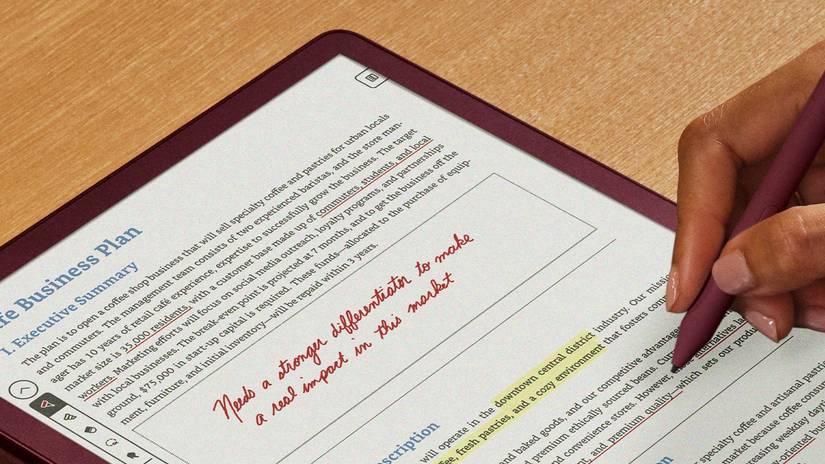 fe Business Plan
1. Executive Summary
The plan is to open a coffee shop business that will sell specialty coffee and pastries for urban locals
and commuters. The management team consists of two experienced baristas, and the store man-
ager has 10 years of retail café experience, expertise to successfully grow the business. The target
market size is 35,000 residents, with a customer base made up of commuters, students, and local
workers. Marketing efforts will focus on social media outreach, loyalty programs, and partnerships
with local businesses. The break-even point is projected at 7 months, and to get the business off the
ground, $75,000 in start-up capital is required. These funds—allocated to the purchase of equip-
ment, furniture, and initial inventory—will be repaid within 3 years.
Needs a stronger differentiator to make
a real impact in this market
scription
will operate in the downtown central district industry. Our missi
ee, fresh pastries, and a cozy environment that fosters comm
and baked goods, and our competitive advantages
premium ethically sourced beans. Curr
and convenience stores. However, these alternatives la
nt, and premium quality—which sets our produ
specialty coffee and artisanal pastri
market because coffee consum
reasing weekday dayt